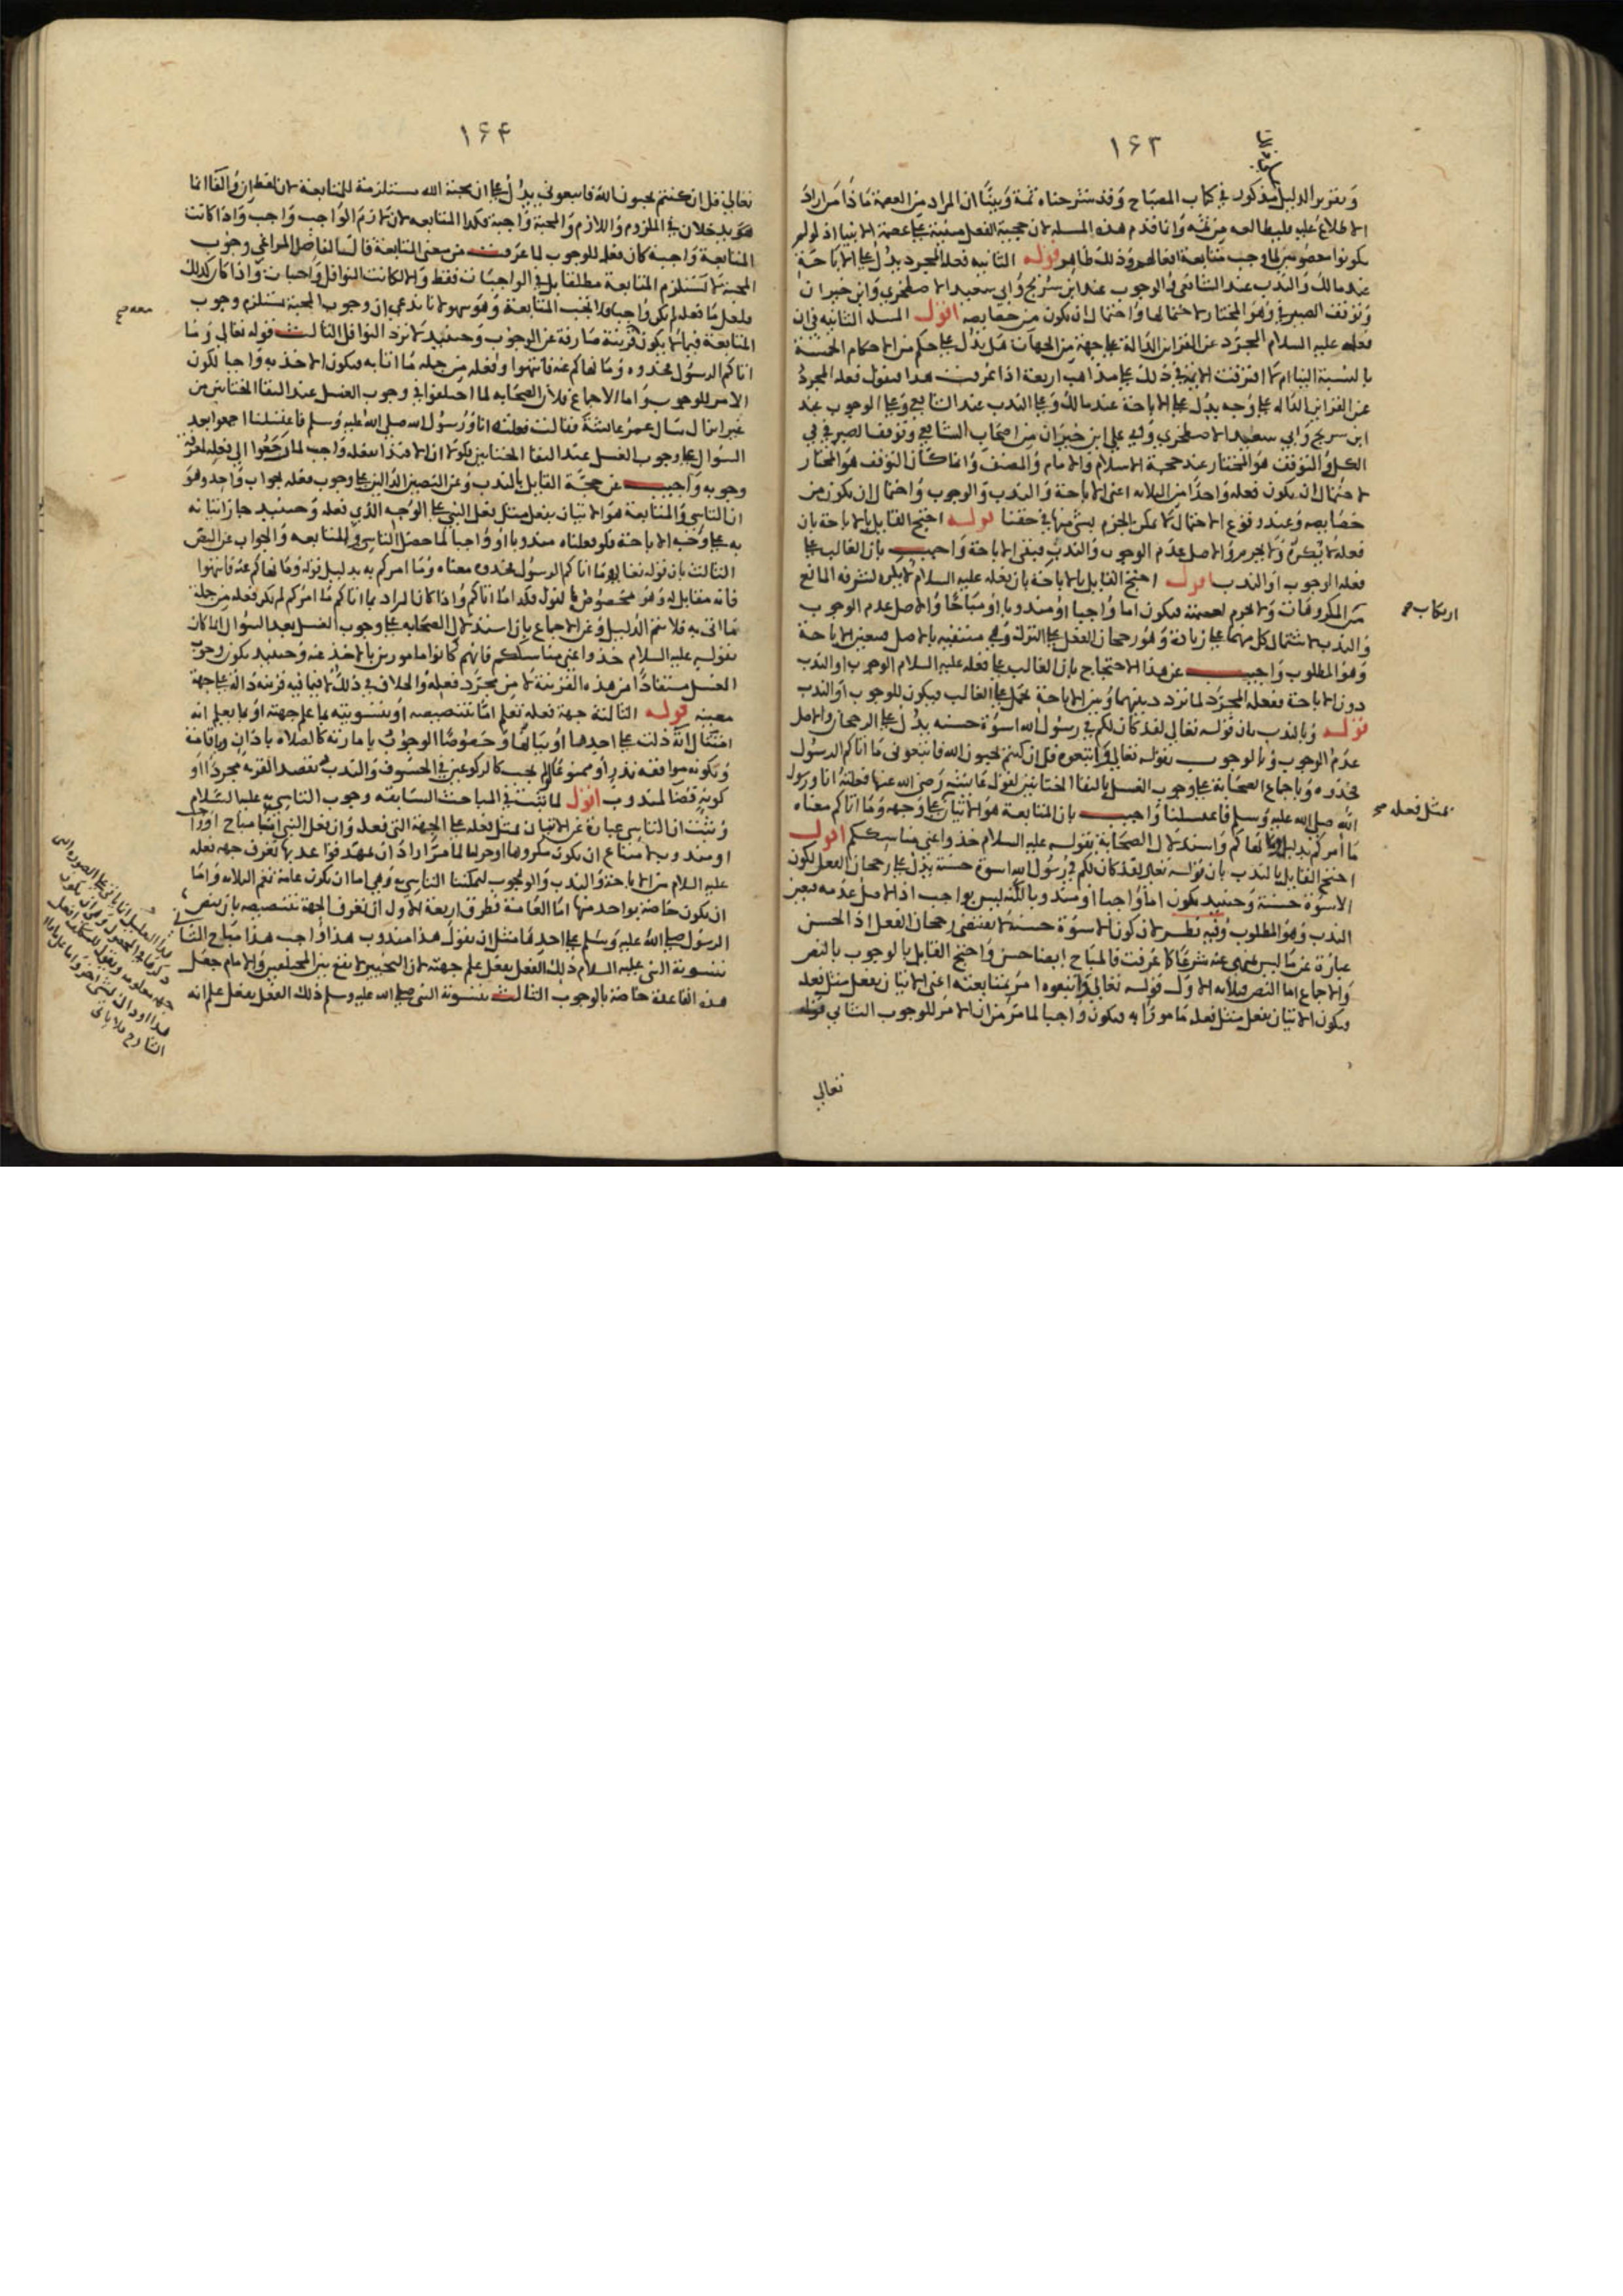 ١۶٣
وتقرير الدليل مذكور في كتاب المصباح وقد شرحناه ثمة وبينا ان المراد من العصمة ماذا من اراد
الاطلاع عليه فليطالعه من ثمه وانما قدم هذه المسله لان حجية الفعل مبنية على عصمة الانبيا اذ لو لم
يكونوا معصومين لما وجب متابعة افعالهم وذلك ظاهر قوله الثانيه فعله المجرد يدل على الاباحة
عند مالك والندب عند الشافعي والوجوب عند ابن سريج وابي سعيد الاصطخري وابن خيران
وتوقف الصيرفي وهو المختار لاحتمالها واحتمال ان يكون من خصايصه اقول المسله الثانيه في ان
فعله عليه السلام المجرد عن القراين الدالة على جهة من الجهات هل يدل على حكم من الاحكام الخمسة
بالنسبة الينا ام لا افترقت الايمة في ذلك على مذاهب اربعة اذا عرفت هذا فنقول فعله المجرد
عن القراين الداله على وجه يدل على الاباحة عند مالك وعلى الندب عند الشافعي وعلى الوجوب عند
ابن سريج وابي سعيد الاصطخري وابي علي ابن خيران من اصحاب الشافعي وتوقف الصيرفي في
الكل والتوقف هو المختار عند حجة الاسلام والامام والمصنف وانما كان التوقف هو المختار
لاحتمال ان يكون فعله واحدا من الثلاثه اعني الاباحة والندب والوجوب واحتمال ان يكون من
خصايصه وعند وقوع الاحتمال لا يمكن الجزم بشي منها في حقنا قوله احتج القايل بالاباحة بان
فعله لا يكره ولا يحرم والاصل عدم الوجوب والندب فبقي الاباحة واجيب بان الغالب على
فعله الوجوب او الندب اقول احتج القايل بالاباحة بان فعله عليه السلام لا يكره لشرفه المانع
من المكروهات ولا يحرم لعصمته فيكون اما واجبا او مندوبا او مباحا والاصل عدم الوجوب
ارتكاب صح
والندب لاشتمال كل منهما على زيادة وهو رجحان الفعل على الترك وهي منتفيه بالاصل فتعين الاباحة
وهو المطلوب واجيب عن هذا الاحتجاج بان الغالب على فعله عليه السلام الوجوب او الندب
دون الاباحة ففعله المجرد لما تردد بينهما وبين الاباحة يحمل على الغالب فيكون للوجوب او الندب
قوله وبالندب بان قوله تعالى لقد كان لكم في رسول الله اسوة حسنه يدل على الرجحان والاصل
عدم الوجوب وبالوجوب بقوله تعالى واتبعوه قل ان كنتم تحبون الله فاتبعوني ما اتاكم الرسول
فخذوه وباجماع الصحابة على وجوب الغسل بالتقا الختانين لقول عايشه رضي الله عنها فعلته انا ورسول
الله صلى الله عليه وسلم فاغتسلنا واجيب بان المتابعة هو الاتيان على وجهه وما اتاكم معناه
بمثل فعله صح
ما امركم بدليل وما نهاكم واستدلال الصحابة بقوله عليه السلام خذوا عني مناسككم اقول
احتج القايل بالندب بان قوله تعالى لقد كان لكم في رسول الله اسوة حسنة يدل على رجحان الفعل لكون
الاسوة حسنة وحينيذ يكون اما واجبا او مندوبا لكنه ليس بواجب اذ الاصل عدمه فتعين
الندب وهو المطلوب وفيه نظر لان كون الاسوة حسنة لا يقتضي رجحان الفعل اذ الحسن
عبارة عن ما ليس منهي عنه شرعا كما عرفت فالمباح ايضا حسن واحتج القايل بالوجوب بالنص
والاجماع اما النص فثلاثه الاول قوله تعالى واتبعوه امر بمتابعته اعني الاتيان بفعل مثل فعله
فيكون الاتيان بفعل مثل فعله مامورا به فيكون واجبا لما مر من ان الامر للوجوب الثاني قوله
تعالى
١۶۴
تعالى قل ان كنتم تحبون الله فاتبعوني يدل على ان محبة الله مستلزمة للمتابعة لان لفظ ان والفا انما
يدخلان في الملزوم واللازم والمحبة واجبة فكذا المتابعه لان لازم الواجب واجب واذا كانت
المتابعة واجبة كان فعله للوجوب لما عرفت من معنى المتابعة قال الفاضل المراغي وجوب
المحبة لا تستلزم المتابعة مطلقا بل في الواجبات فقط والا لكانت النوافل واجبات واذا كان كذلك
فلعل ما فعله لم يكن واجبا فلا تجب المتابعة وهو سهو لانا ندعي ان وجوب المحبة تستلزم وجوب
المتابعة فيما لا يكون قرينة صارفة عن الوجوب وحينيذ لا ترد النوافل الثالث قوله تعالى وما
اتاكم الرسول فخذوه وما نهاكم عنه فانتهوا وفعله من جمله ما اتانا به فيكون الاخذ به واجبا لكون
الامر للوجوب واما الاجماع فلان الصحابه لما اختلفوا في وجوب الغسل عند التقا الختانين من
غير انزال سال عمر عائشة فقالت فعلته انا ورسول الله صلى الله عليه وسلم فاغتسلنا اجمعوا بعد
السوال على وجوب الغسل عند التقا الختانين
وجوبه واجيب عن حجة القايل بالندب وعن النصين الدالين على وجوب فعله بجواب واحد وهو
ان التاسي والمتابعة هو الاتيان بفعل مثل فعل النبي على الوجه الذي فعله وحينيذ جاز اتيانه
به على وجه الاباحة فلو فعلناه مندوبا او واجبا لما حصل التاسي والمتابعه والجواب عن النص
الثالث بان قوله تعالى وما اتاكم الرسول فخذوه معناه وما امركم به بدليل قوله وما نهاكم عنه فانتهوا
ما اتى به فلا يتم الدليل وعن الاجماع بان استدلال الصحابه على وجوب الغسل بعد السوال انما كان
بقوله عليه السلام خذوا عني مناسككم فانهم كانوا مامورين بالاخذ عنه وحينيذ يكون وجوب
الغسل مستفادا من هذه القرينة لا من مجرد فعله والخلاف في ذلك
معينه قوله الثالثة جهة فعله تعلم اما بتنصيصه او بتسويته بما علم جهته او بما يعلم انه
امتثال اية دلت على احدها او بيانها وخصوصا الوجوب بامارته كالصلاه باذان واقامة
وبكونه موافقة نذر او ممنوعا لو لم يجب كالركوعين في الخسوف والندب بقصد القربه مجردا او
كونه قضا لمندوب اقول لما ثبت في المباحث السابقه وجوب التاسي به عليه السلام
وثبت ان التاسي عبارة عن الاتيان بمثل فعله على الجهة التي فعله وان فعل النبي اما مباح او واجب
او مندوب لامتناع ان يكون مكروها او حراما لما مر اراد ان يمهد قواعد بها تعرف جهه فعله
عليه السلام من الاباحة والندب والوجوب ليمكننا التاسي به وهي اما ان يكون عامة تعم الثلاثه واما
ان يكون خاصة بواحد منها اما العامة فطرق اربعة الاول ان تعرف الجهة بتنصيصه بان ينص
الرسول صلى الله عليه وسلم على احدها مثل ان يقول هذا مندوب هذا واجب هذا مباح الثاني
بتسوية النبي عليه السلام ذلك الفعل بفعل علم جهته لان التخيير لا يقع بين المختلفين والامام جعل
هذه القاعدة خاصة بالوجوب الثالث بتسوية النبي صلى الله عليه وسلم ذلك الفعل بفعل علم انه